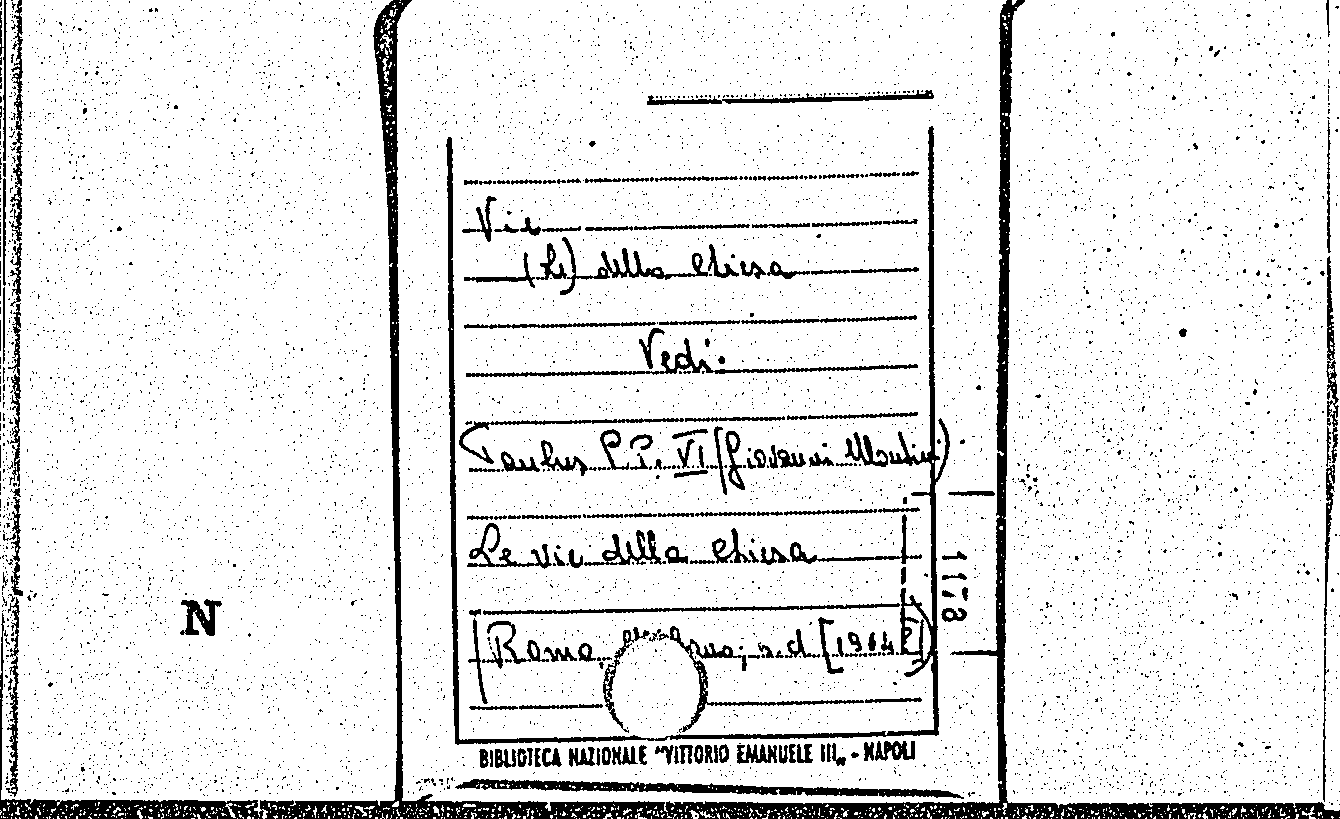 Vie
(Le) della Chiesa
Vedi:
Paulus P.P. VI (Giovanni Montini)
Le vie della Chiesa
1178
N
(Roma, s.d. [1964?])
BIBLIOTECA NAZIONALE "VITTORIO EMANUELE III„ - NAPOLI